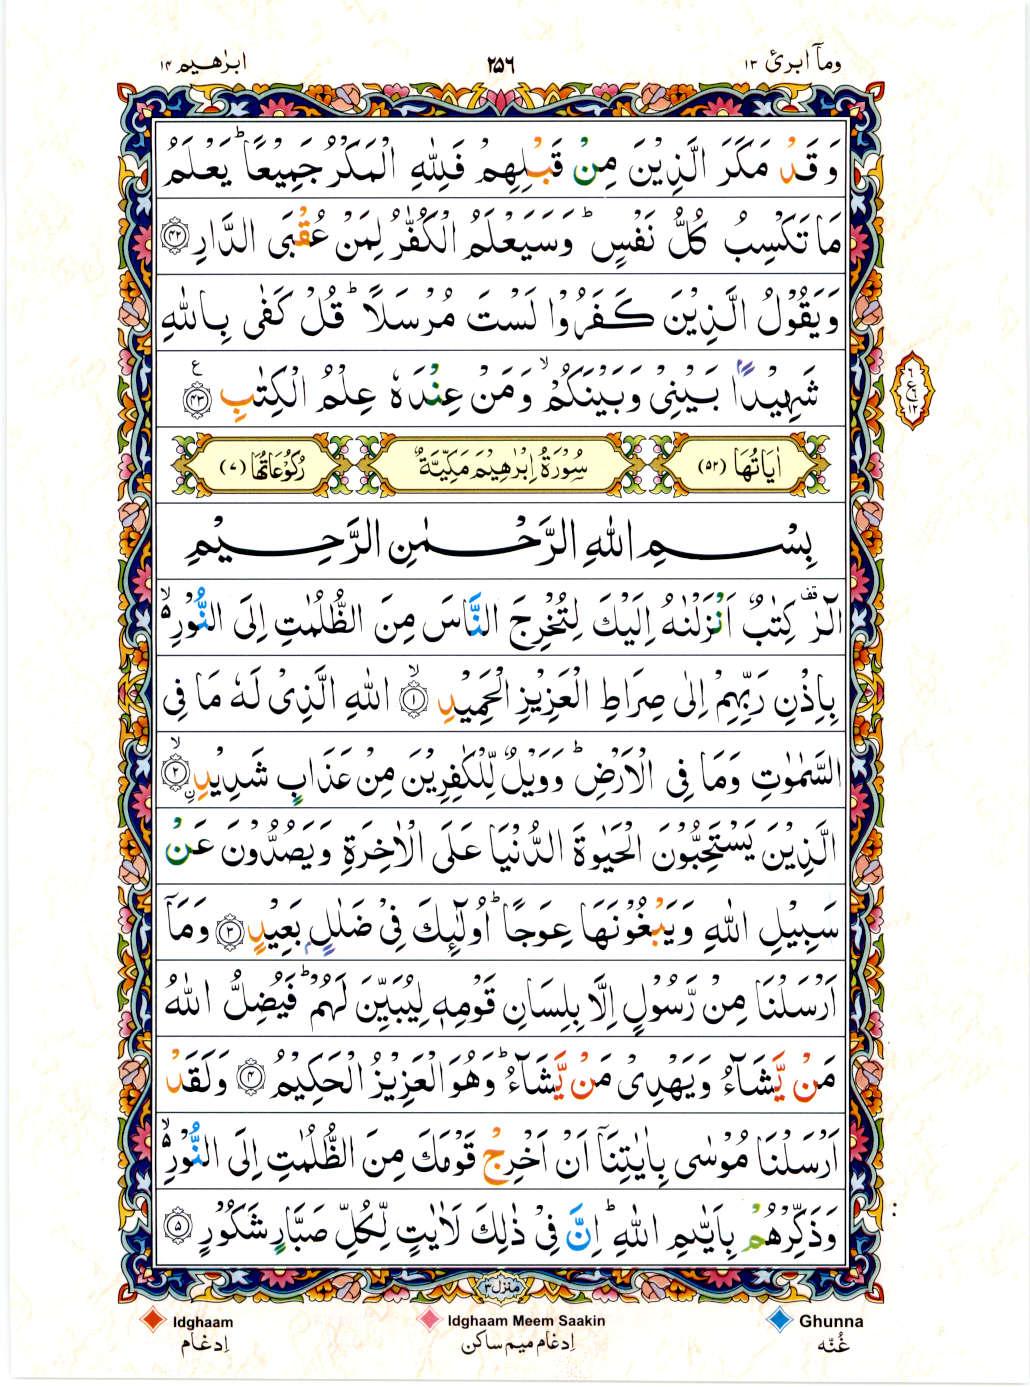 وماۤ ابرئ ١٣
٢٥٦
ابرٰهيم ١٤
وَقَدْ مَكَرَ الَّذِيْنَ مِنْ قَبْلِهِمْ فَلِلّٰهِ الْمَكْرُ جَمِيْعًا ؕ يَعْلَمُ
مَا تَكْسِبُ كُلُّ نَفْسٍ ؕ وَسَيَعْلَمُ الْكُفّٰرُ لِمَنْ عُقْبَى الدَّارِ ﴿٤٢﴾
وَيَقُوْلُ الَّذِيْنَ كَفَرُوْا لَسْتَ مُرْسَلًا ؕ قُلْ كَفٰى بِاللّٰهِ
شَهِيْدًۢا بَيْنِيْ وَبَيْنَكُمْ ۙ وَمَنْ عِنْدَهٗ عِلْمُ الْكِتٰبِ ﴿٤٣﴾ ع
٦
ع
١٢
اٰيَاتُهَا (٥٢) سُوْرَةُ اِبْرٰهِيْمَ مَكِّيَّةٌ رُكُوْعَاتُهَا (٧)
بِسْمِ اللّٰهِ الرَّحْمٰنِ الرَّحِيْمِ
الٓرٰ ۫ كِتٰبٌ اَنْزَلْنٰهُ اِلَيْكَ لِتُخْرِجَ النَّاسَ مِنَ الظُّلُمٰتِ اِلَى النُّوْرِ ۙ۬
بِاِذْنِ رَبِّهِمْ اِلٰى صِرَاطِ الْعَزِيْزِ الْحَمِيْدِ ۙ﴿١﴾ اللّٰهِ الَّذِيْ لَهٗ مَا فِى
السَّمٰوٰتِ وَمَا فِى الْاَرْضِ ؕ وَوَيْلٌ لِّلْكٰفِرِيْنَ مِنْ عَذَابٍ شَدِيْدِ ۙ﴿٢﴾
الَّذِيْنَ يَسْتَحِبُّوْنَ الْحَيٰوةَ الدُّنْيَا عَلَى الْاٰخِرَةِ وَيَصُدُّوْنَ عَنْ
سَبِيْلِ اللّٰهِ وَيَبْغُوْنَهَا عِوَجًا ؕ اُولٰٓئِكَ فِيْ ضَلٰلٍۭ بَعِيْدٍ ﴿٣﴾ وَمَاۤ
اَرْسَلْنَا مِنْ رَّسُوْلٍ اِلَّا بِلِسَانِ قَوْمِهٖ لِيُبَيِّنَ لَهُمْ ؕ فَيُضِلُّ اللّٰهُ
مَنْ يَّشَآءُ وَيَهْدِيْ مَنْ يَّشَآءُ ؕ وَهُوَ الْعَزِيْزُ الْحَكِيْمُ ﴿٤﴾ وَلَقَدْ
اَرْسَلْنَا مُوْسٰى بِاٰيٰتِنَاۤ اَنْ اَخْرِجْ قَوْمَكَ مِنَ الظُّلُمٰتِ اِلَى النُّوْرِ ۙ۬
وَذَكِّرْهُمْ بِاَيّٰىمِ اللّٰهِ ؕ اِنَّ فِيْ ذٰلِكَ لَاٰيٰتٍ لِّكُلِّ صَبَّارٍ شَكُوْرٍ ﴿٥﴾
منزل ٣
Idghaam
اِدغام
Idghaam Meem Saakin
اِدغام ميم ساكن
Ghunna
غُنّه